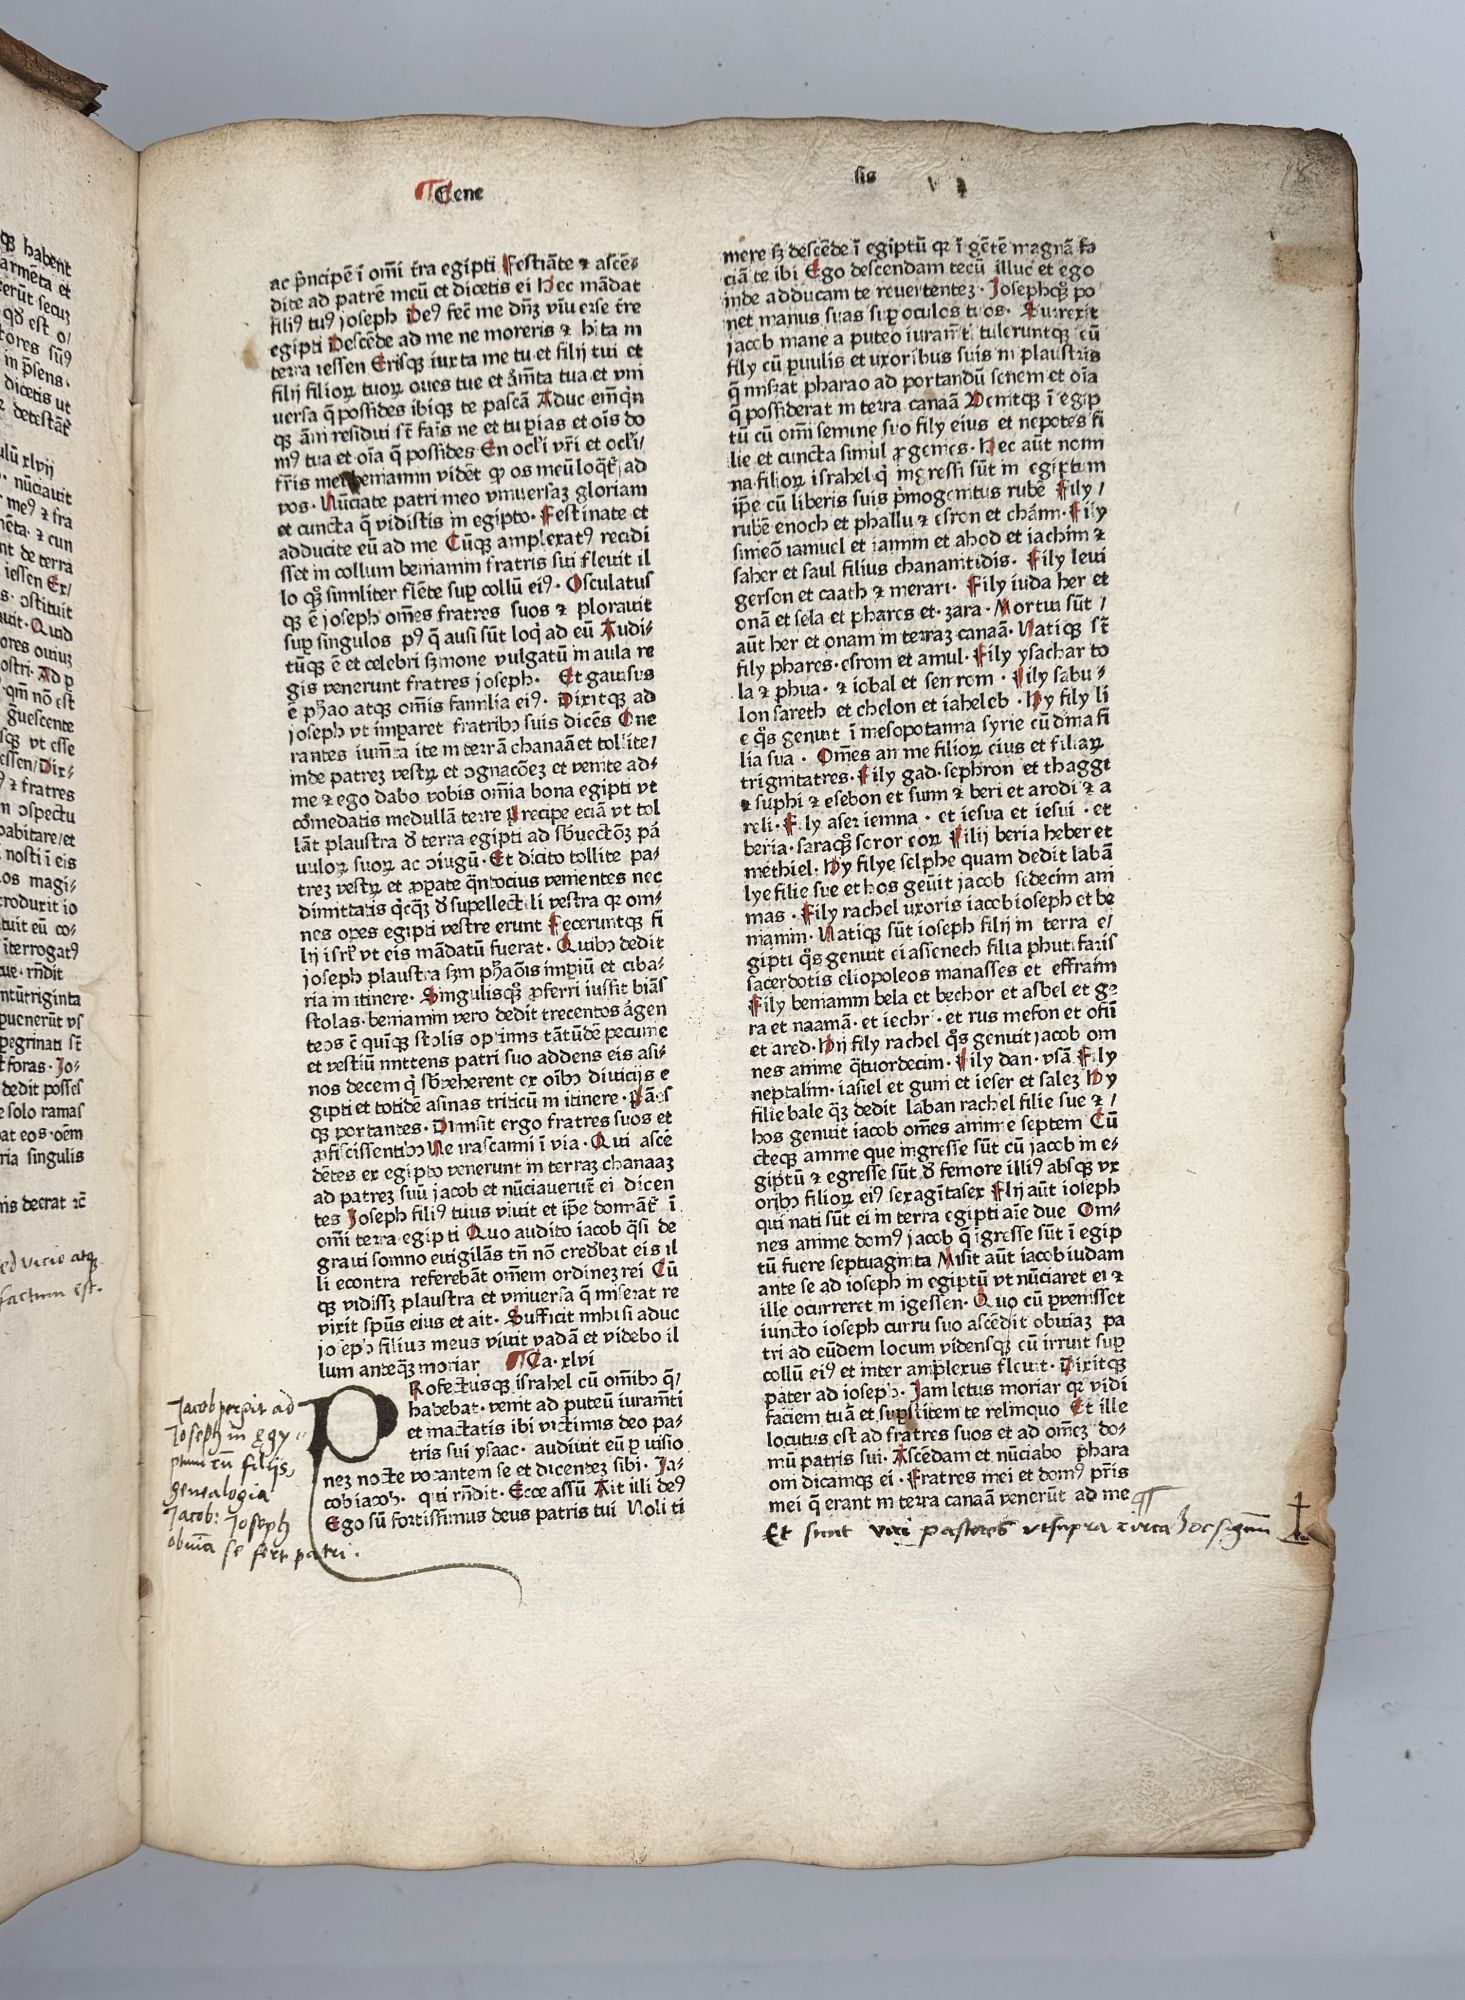 Gene
sis
18
ac p̄ncipē ī om̄i t̄ra egipti Festīāte ⁊ ascē⸗
dite ad patrē meū et dicetis ei Hec mādat
filiꝰ tuꝰ joseph Deꝰ fec̄ me dn̄ꝫ vīu erse t̄re
egipti Descēde ad me ne moreris ⁊ hīta in
terra iessen Erisqꝫ iuxta me tu et filij tui et
filij filioꝝ tuoꝝ oues tue et ar̄m̄ta tua et vni
uersa q̄ possides ibiqꝫ te pascā Aduc em̄
qꝫ ām̄ residui sт̄ fais ne et tu pias et oīs do
mꝰ tua et oīa q̄ possides En ocl̄i vr̄i et ocl̄i/
fr̄is mei beniamin vidēt ꝙ os meū loq̄t̄ ad
vos. Nūciate patri meo vniuersaꝫ gloriam
et cuncta q̄ vidistis in egipto. Festinate et
adducite eū ad me Cūqꝫ amplexatꝰ recidi
sset in collum beniamin fratris sui fleuit il
lo qꝫ similiter flēte suꝑ collū eiꝰ. Osculatus
qꝫ ē joseph om̄es fratres suos ⁊ plorauit
suꝑ singulos pꝰ q̄ ausi sūt loq̄ ad eū Audi⸗
tūqꝫ ē et celebri s̄mone vulgatū in aula re
gis venerunt fratres joseph. Et gauisus
ē ph̄ao atqꝫ om̄is familia eiꝰ. Dixitqꝫ ad
joseph vt imparet fratribꝫ suis dicēs One
rantes ium̄ta ite in terrā chanaā et tollite/
inde patreꝫ vestrꝝ et ↄgnacōeꝫ et venite ad⸗
me ⁊ ego dabo vobis om̄ia bona egipti vt
cōmedatis medullā terre Precipe eciā vt tol
lāt plaustra d̄ terra egipti ad sb̄uectōꝫ pa
uuloꝝ suoꝝ ac ↄiugū. Et dicito tollite pa⸗
treꝫ vestrꝝ et ꝓpate q̄ntocius venientes nec
dimittatis q̄cqꝫ d̄ supellectili vestra qꝛ om⸗
nes opes egipti vestre erunt Feceruntqꝫ fi
lij isrl̄ vt eis mādatū fuerat. Quibꝫ dedit
joseph plaustra sm̄ ph̄aōis impiū et ciba⸗
ria in itinere. Singulisqꝫ ꝓferri iussit biās
stolas. beniamin vero dedit trecentos argen
teos ē quīqꝫ stolis optimis tātūdē pecunie
et vestiū mittens patri suo addens eis asi⸗
nos decem q̄ sb̄veherent ex oībꝫ diuicijs e
gipti et totidē asinas triticū in itinere. Pāes
qꝫ portantes. Dimisit ergo fratres suos et
ꝓficiscentibꝫ Ne irascamini ī via. Qui ascē
dētes ex egipto venerunt in terraꝫ chanaaꝫ
ad patreꝫ suū jacob et nūciauerūt ei dicen
tes Joseph filiꝰ tuus viuit et ip̄e domnāt̄ ī
om̄i terra egipti Quo audito iacob q̄si de
graui somno euigilās tn̄ nō credbat eis il
li econtra referebāt om̄em ordineꝫ rei Cū
qꝫ vidissꝫ plaustra et vniuersa q̄ miserat re
vixit spūs eius et ait. Sufficit mihi si aduc
joseph filius meus viuit vadā et videbo il
lum anteqꝫ moriar Ca. xlvi
PRofectusqꝫ israhel cū om̄ibꝫ q̄/
habebat. venit ad puteū iuram̄ti
et mactatis ibi victimis deo pa⸗
tris sui ysaac. audiuit eū ꝑ visio
neꝫ nocte vocantem se et dicenteꝫ sibi. Ja⸗
cob iacob. qui rn̄dit. Ecce assū Ait illi deꝰ
Ego sū fortissimus deus patris tui Noli ti
Jacob pergit ad
Joseph in ęgy⸗
ptum cū filijs,
genealogia
Jacob: Joseph
obuiā se fert patri.
mere sꝫ descēde ī egiptū qꝛ ī gētē magnā fa
ciā te ibi Ego descendam tecū illuc et ego
inde adducam te reuertenteꝫ. Josephqꝫ po
net manus suas suꝑ oculos tuos. Surrexit
jacob mane a puteo iuram̄ti tuleruntqꝫ eū
fily cū ꝑuulis et uxoribus suis in plaustris
q̄ miserat pharao ad portandū senem et oīa
q̄ possiderat in terra canaā Venitqꝫ ī egip
tū cū om̄i semine suo fily eius et nepotes fi
lie et cuncta simul ꝓgenies. Hec aūt nomi
na filioꝝ israhel q̄ ingressi sūt in egiptum
ip̄e cū liberis suis p̄mogenitus rubē Fily/
rubē enoch et phallu ⁊ esron et charmi. Fily
simeō iamuel et iamin et ahod et iachim ⁊
saher et saul filius chananitidis. Fily leui
gerson et caath ⁊ merari. Fily iuda her et
onā et sela et phares et. zara. Mortui sūt/
aūt her et onam in terraꝫ canaā. Natiqꝫ sт̄
fily phares. esrom et amul. Fily ysachar to
la ⁊ phua. ⁊ iobal et senrom. Fily sabu⸗
lon sareth et chelon et iaheleb. Hy fily li
e q̄s genuit ī mesopotamia syrie cū dina fi
lia sua. Om̄es anime filioꝝ eius et filiaꝝ
trigintatres. Fily gad. sephron et thaggi
⁊ suphi ⁊ esebon et sunn ⁊ beri et arodi ⁊ a
reli. Fily aser iemna. et iesua et iesui. et
beria. saraqꝫ soror eoꝝ Filij beria heber et
methiel. Hy filye selphe quam dedit labā
lye filie sue et hos genūit jacob sedecim ani
mas. Fily rachel uxoris iacob ioseph et be
niamin. Natiqꝫ sūt ioseph filij in terra e/
gipti q̄s genuit ei assenech filia phutifaris
sacerdotis eliopoleos manasses et effraim
Fily beniamin bela et bechor et asbel et ge
ra et naamā. et iechi. et rus mefon et ofū
et ared. Hij fily rachel q̄s genuit jacob om
nes anime q̄tuordecim. Fily dan. vsā. Fily
neptalim. iasiel et guni et ieser et saleꝫ Hy
filie bale qꝫ dedit laban rachel filie sue ⁊/
hos genuit iacob om̄es anime septem Cū
cteqꝫ anime que ingresse sūt cū jacob in e⸗
giptū ⁊ egresse sūt d̄ femore illiꝰ absqꝫ vx
oribꝫ filioꝝ eiꝰ sexagītasex Flij aūt ioseph
qui nati sūt ei in terra egipti aīe due Om⸗
nes anime domꝰ jacob q̄ īgresse sūt ī egip
tū fuere septuaginta Misit aūt iacob iudam
ante se ad ioseph in egiptū vt nūciaret ei ⁊
ille ocurreret in igessen. Quo cū ꝑvenisset
iuncto ioseph curru suo ascēdit obuiaꝫ pa
tri ad eūdem locum vidensqꝫ eū irruit suꝑ
collū eiꝰ et inter amplexus fleuit. Dixitqꝫ
pater ad ioseph. Jam letus moriar qꝛ vidi
faciem tuā et suꝑstitem te relinquo Et ille
locutus est ad fratres suos et ad om̄eꝫ do⸗
mū patris sui. Ascēdam et nūciabo phara
om dicamqꝫ ei. Fratres mei et domꝰ p̄ris
mei q̄ erant in terra canaā venerūt ad me
Et sunt viri pastores vt supra circa hoc signum